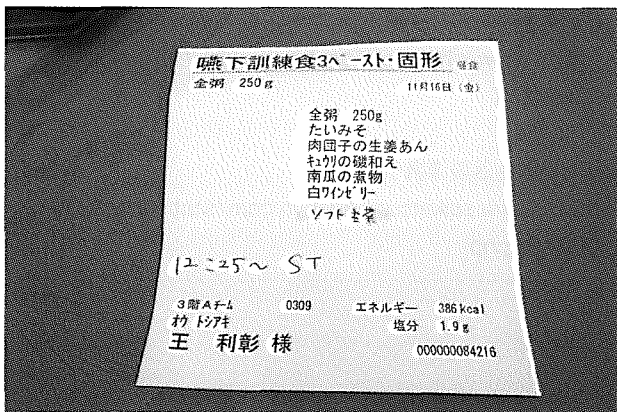 嚥下訓練食3ペースト・固形 昼食
全粥 250g 11月16日(金)
全粥 250g
たいみそ
肉団子の生姜あん
キュウリの磯和え
南瓜の煮物
白ワインゼリー
ソフト
12:25〜 ST
3階Aチーム 0309 エネルギー 386kcal
オウ トシアキ 塩分 1.9g
王 利彰 様 000000084216